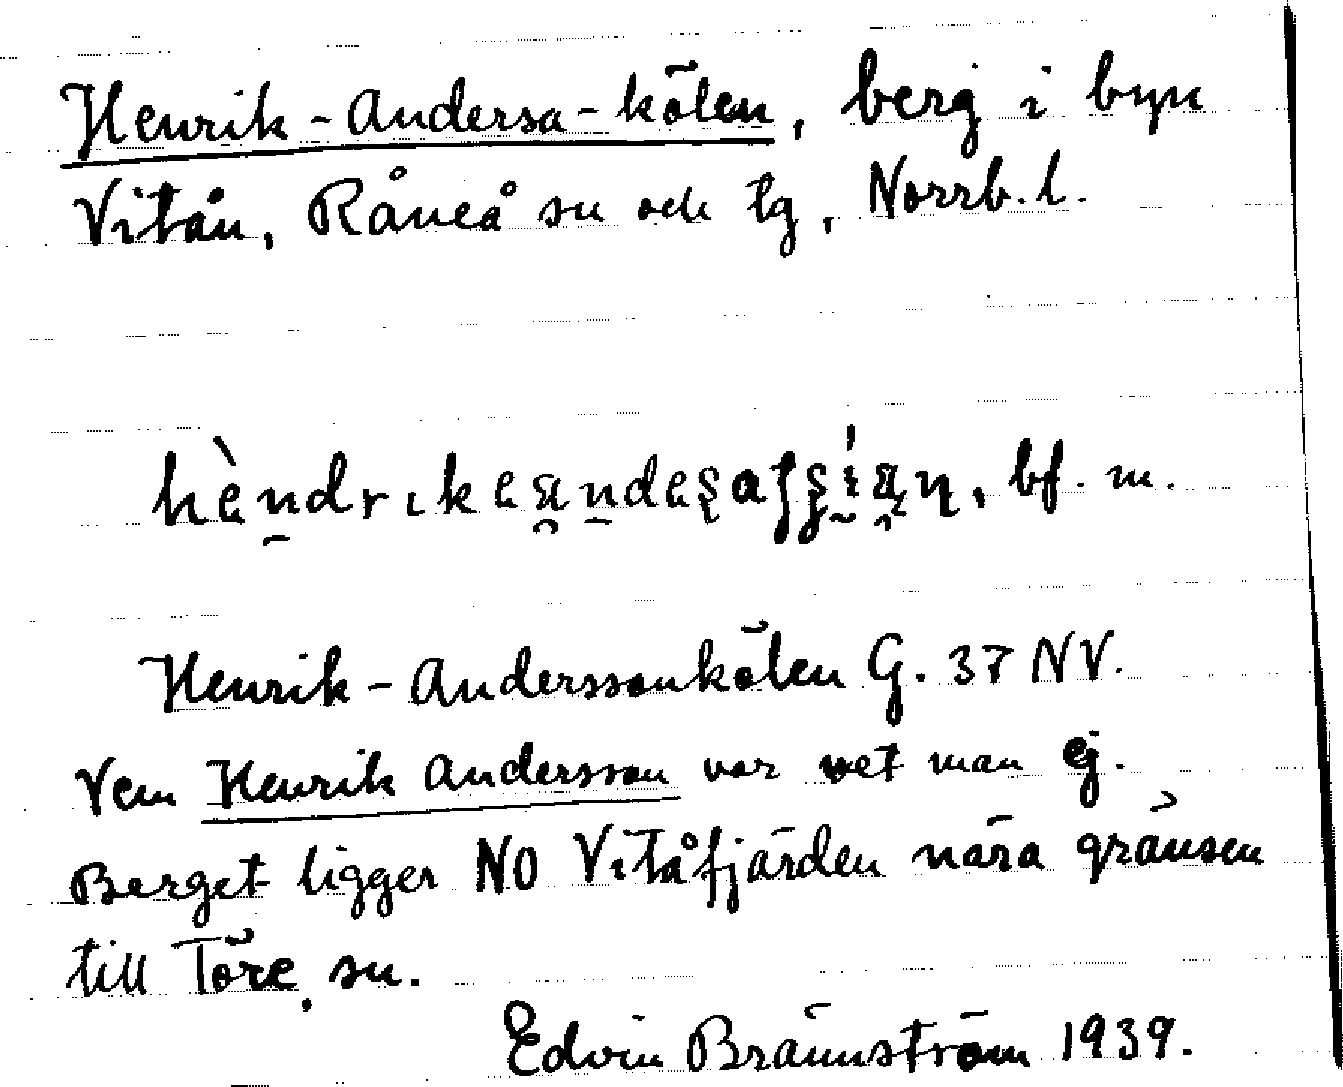 Henrik-Andersa-kölen, berg i byn
Vitån, Råneå sn och tg, Norrb.l.
bf. m.
Henrik-Anderssonkölen G. 37 NV.
Vem Henrik Andersson var vet man ej.
Berget ligger NO Vitåfjärden nära gränsen
till Töre sn.
Edvin Brännström 1939.